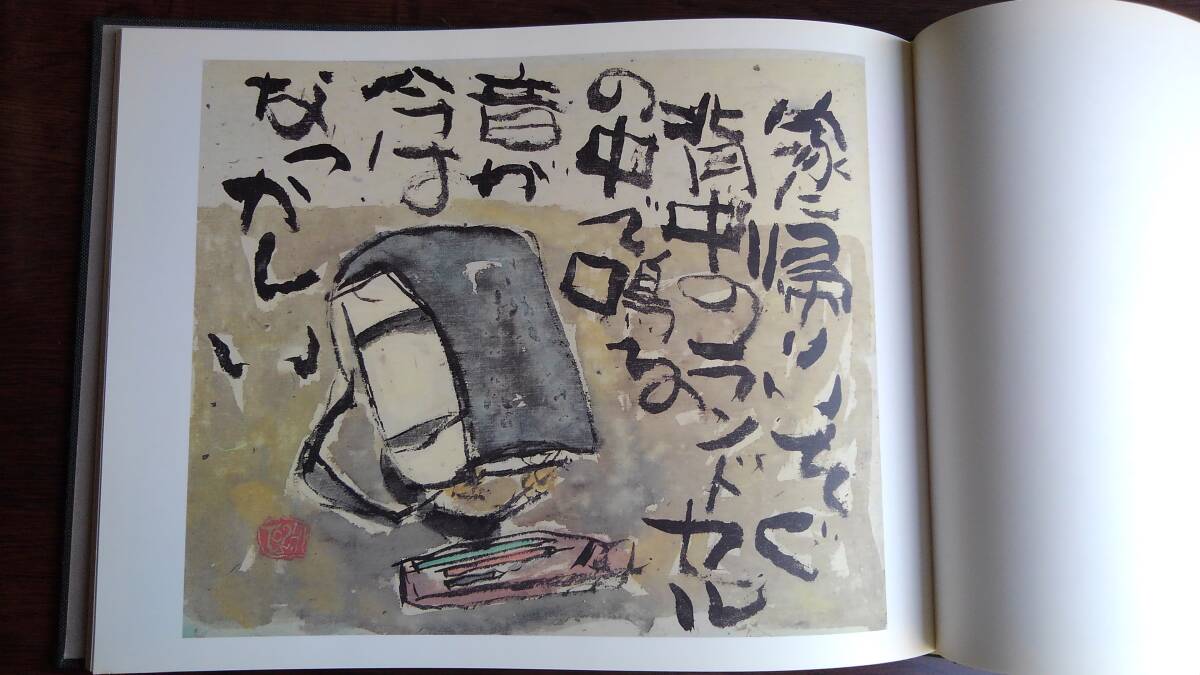 家に帰りいそぐ
背中のランドセル
の中で鳴る
昔が
今は
なつかしい